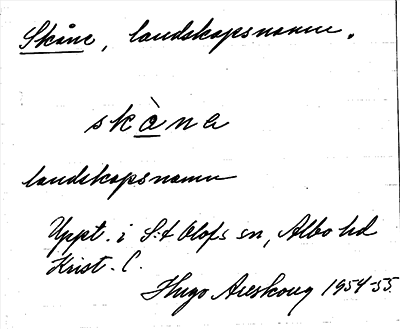 Skåne, landskapsnamn.
skà̱na
landskapsnamn
Uppt. i S:t Olofs sn, Albo hd
Krist. l.
Hugo Areskoug 1954-55.